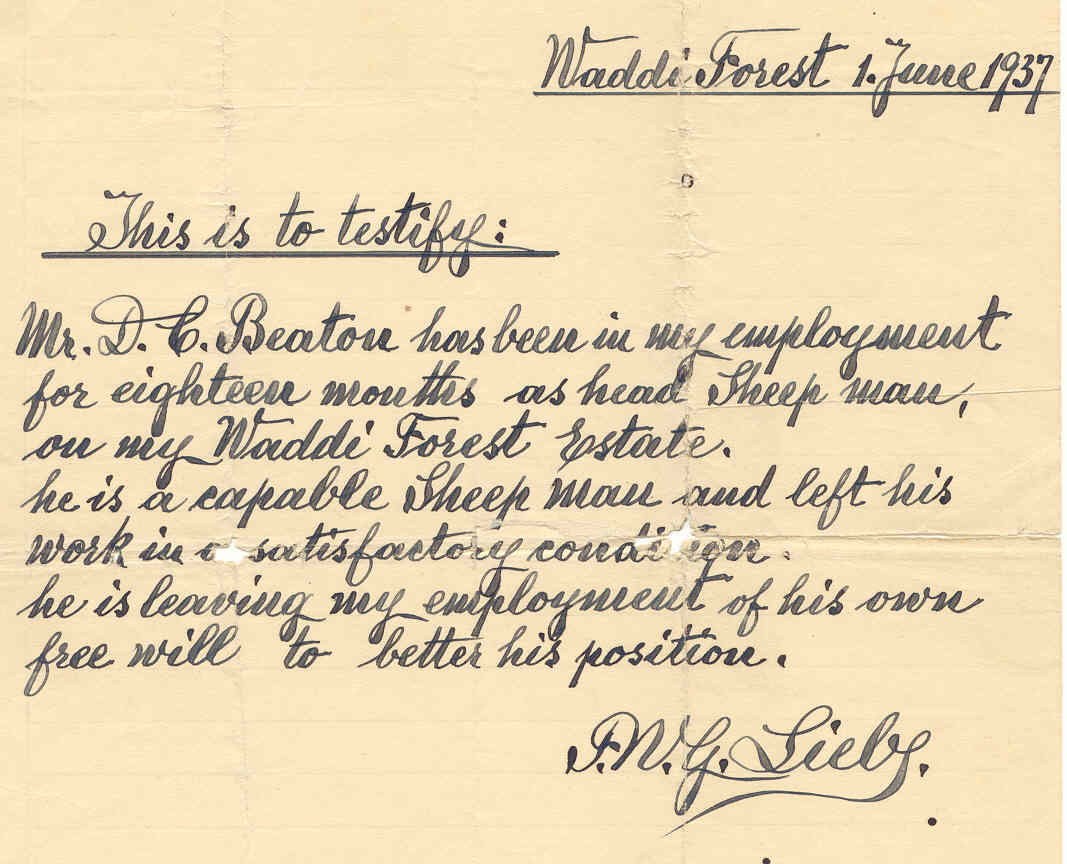 Waddi Forest 1. June 1937
This is to testify:
Mr. D. C. Beaton has been in my employment
for eighteen months as head Sheep man,
on my Waddi Forest Estate.
he is a capable Sheep man and left his
work in a satisfactory condition.
he is leaving my employment of his own
free will to better his position.
F.W.G. Liebe.